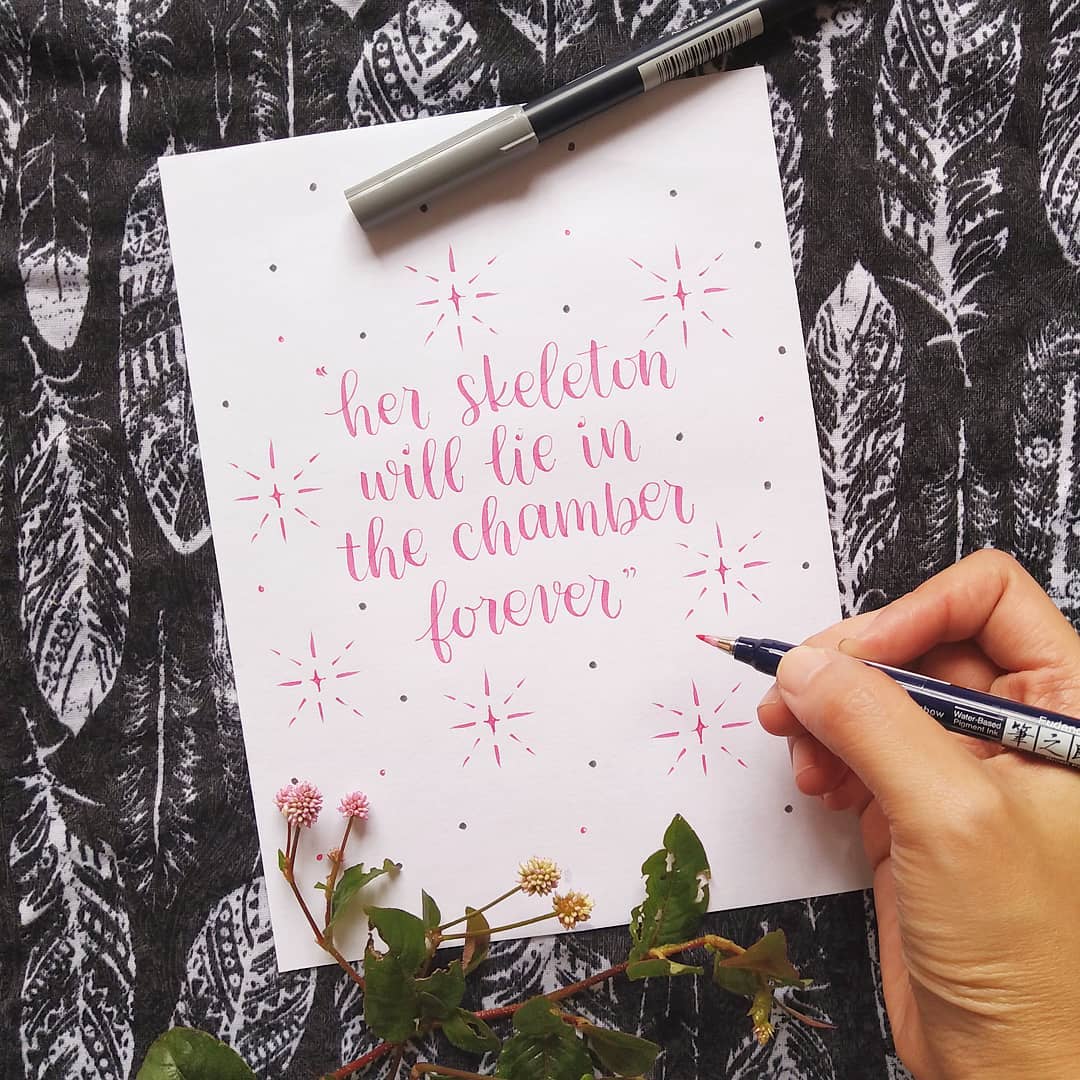 “her skeleton
will lie in
the chamber
forever”
bow
Water-Based
Pigment Ink
筆之